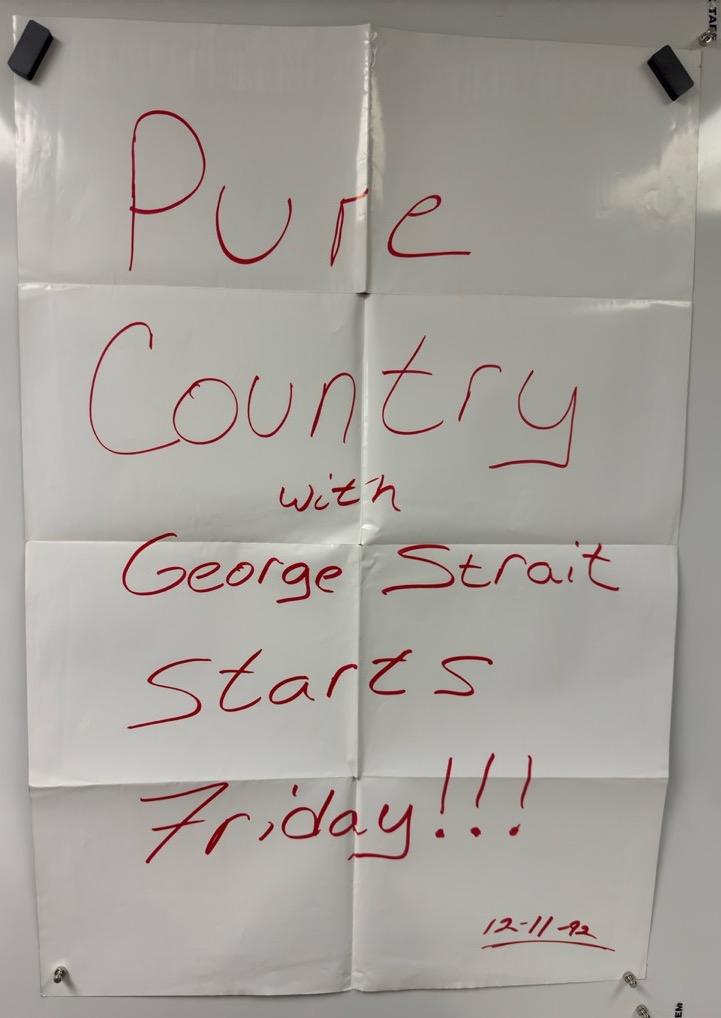 Pure
Country
with
George Strait
Starts
Friday!!!
12-11-92